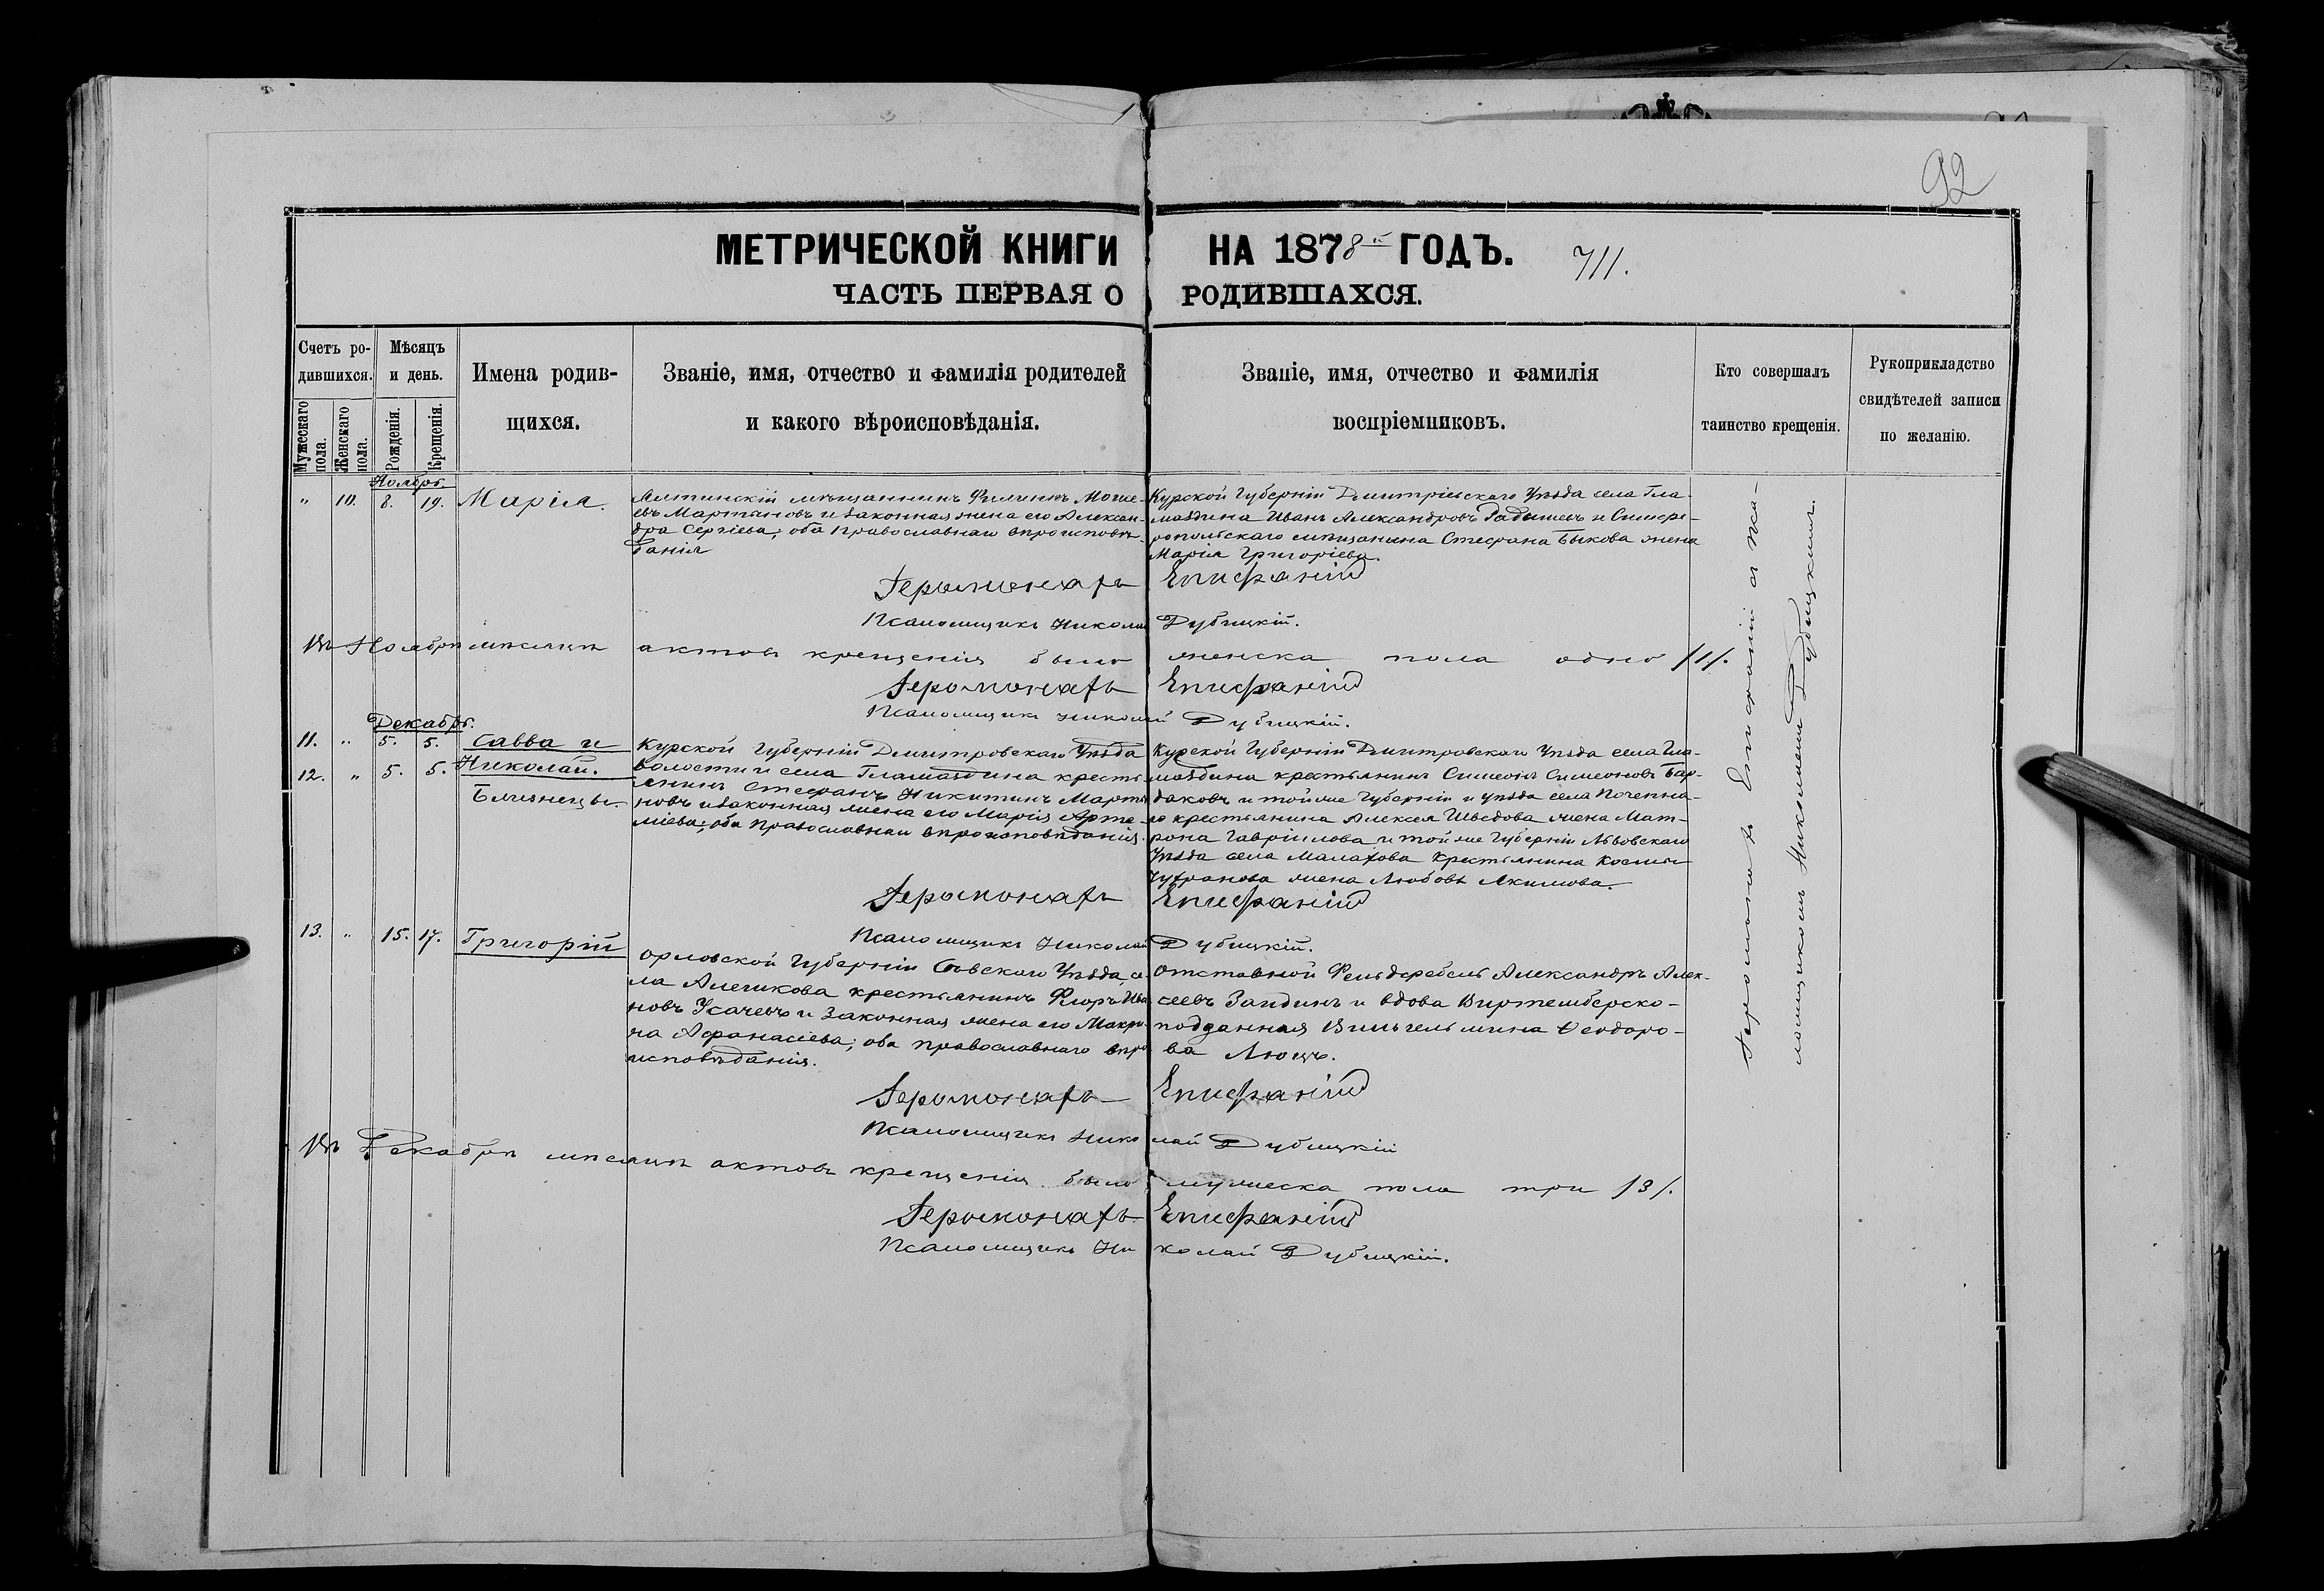 92
МЕТРИЧЕСКОЙ КНИГИ НА 1878й ГОДЪ. 711.
ЧАСТЬ ПЕРВАЯ О РОДИВШАХСЯ.
Счетъ ро-
дившихся.
Мужескаго пола.
Женскаго пола.
Мѣсяцъ
и день.
Рожденія.
Крещенія.
Имена родив-
щихся.
Званіе, имя, отчество и фамилія родителей
и какого вѣроисповѣданія.
Званіе, имя, отчество и фамилія
воспріемниковъ.
Кто совершалъ
таинство крещенія.
Рукоприкладство
свидѣтелей записи
по желанію.
Ноябрь.
" 10. 8. 19. Марія.
Ялтинскій мѣщанинъ Филиппъ Моисе-
евъ Мартыновъ и законная жена его Алексан-
дра Сергіева; оба православнаго вѣроисповѣ-
данія
Курской Губерніи Дмитріевскаго Уѣзда села Гла-
маздина Иванъ Александровъ Радышевъ и Симфе-
ропольскаго мѣщанина Стефана Быкова жена
Марія Григоріева.
Іеромонахъ Епифаній
Псаломщикъ Николай Дубицкій.
Въ Ноябрѣ мѣсяцѣ актовъ крещенія было женска пола одно /1/.
Іеромонахъ Епифаній
Псаломщикъ Николай Дубицкій.
Декабрь.
11. " 5. 5. Савва и
12. " 5. 5. Николай.
Близнецы.
Курской Губерніи Дмитровскаго Уѣзда
волости и села Гламаздина кресть-
янинъ Стефанъ Никитинъ Марты-
новъ и законная жена его Марія Арте-
міева; оба православнаго вѣроисповѣданія.
Курской Губерніи Дмитровскаго Уѣзда села Гла-
маздина крестьянинъ Симеонъ Симеоновъ Бар-
даковъ и той же Губерніи и уѣзда села Почепна-
го крестьянина Алексея Шведова жена Мат-
рона Гавріилова и той же Губерніи Львовскаго
Уѣзда села Малахова крестьянина Космы
Чухранова жена Любовь Якимова.
Іеромонахъ Епифаній
Псаломщикъ Николай Дубицкій.
13. " 15. 17. Григорій
Орловской Губерніи Севскаго Уѣзда, се-
ла Алешкова крестьянинъ Флоръ Ива-
новъ Усачевъ и законная жена его Макри-
на Афанасіева; оба православнаго вѣро-
исповѣданія.
Отставной Фельдфебель Александръ Алек-
сеевъ Зандинъ и вдова Виртембергско-
подданная Вильгельмина Ѳеодоро-
ва Люцъ.
Іеромонахъ Епифаній
Псаломщикъ Николай Дубицкій
Въ Декабрѣ мѣсяцѣ актовъ крещенія было мужеска пола три /3/.
Іеромонахъ Епифаній
Псаломщикъ Николай Дубицкій.
Іеромонахъ Епифаній съ Пса-
ломщикомъ Николаемъ Дубицкимъ.